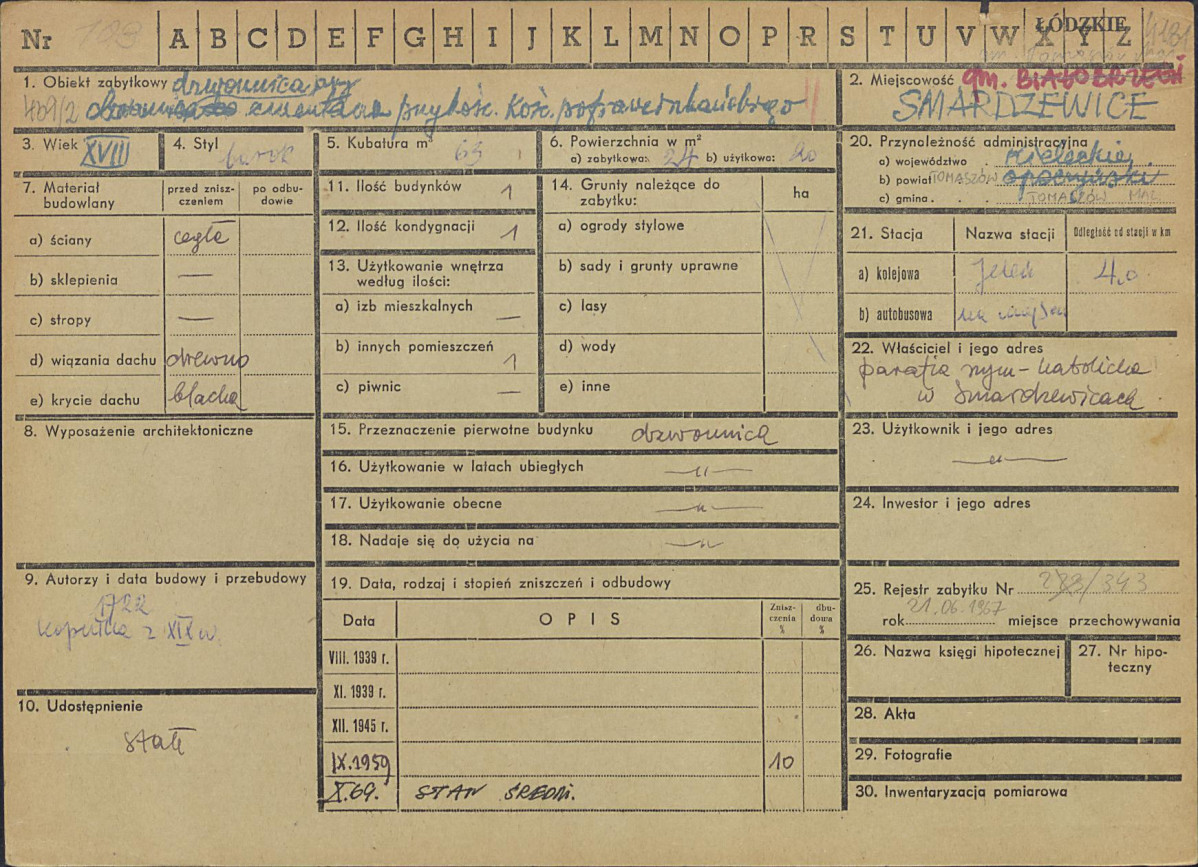 Nr 103 A B C D E F G H I J K L M N O P R S T U V W X Y Z
ŁÓDZKIE
1. Obiekt zabytkowy dzwonnica przy
cmentarna przy kośc. Kośc. pofranciszkańskiego
2. Miejscowość gm. BIAŁOBRZEGI
SMARDZEWICE
3. Wiek XVIII
4. Styl barok
5. Kubatura m³ 63
6. Powierzchnia w m²
a) zabytkowa: 24 b) użytkowa: 20
7. Materiał budowlany
przed zniszczeniem
po odbudowie
a) ściany cegła
b) sklepienia —
c) stropy —
d) wiązania dachu drewno
e) krycie dachu blacha
8. Wyposażenie architektoniczne
9. Autorzy i data budowy i przebudowy
1722
kopułka z XIX w.
10. Udostępnienie
stałe
11. Ilość budynków 1
12. Ilość kondygnacji 1
13. Użytkowanie wnętrza
według ilości:
a) izb mieszkalnych —
b) innych pomieszczeń 1
c) piwnic —
14. Grunty należące do
zabytku:
ha
a) ogrody stylowe
b) sady i grunty uprawne
c) lasy
d) wody
e) inne
15. Przeznaczenie pierwotne budynku dzwonnica
16. Użytkowanie w latach ubiegłych —"—
17. Użytkowanie obecne —"—
18. Nadaje się do użycia na —"—
19. Data, rodzaj i stopień zniszczeń i odbudowy
Data OPIS Zniszczenia % Odbudowa %
VIII. 1939 r.
XI. 1939 r.
XII. 1945 r.
IX.1959 10
X.69. STAN ŚREDNI.
20. Przynależność administracyjna
a) województwo kieleckie
b) powiat TOMASZÓW opoczyński
c) gmina TOMASZÓW MAZ.
21. Stacja Nazwa stacji Odległość od stacji w km
a) kolejowa Jeleń 4,0
b) autobusowa na miejscu
22. Właściciel i jego adres
parafia rzym-katolicka
w Smardzewicach
23. Użytkownik i jego adres
—"—
24. Inwestor i jego adres
25. Rejestr zabytku Nr 343
rok 21.06.1967 miejsce przechowywania
26. Nazwa księgi hipotecznej
27. Nr hipoteczny
28. Akta
29. Fotografie
30. Inwentaryzacja pomiarowa